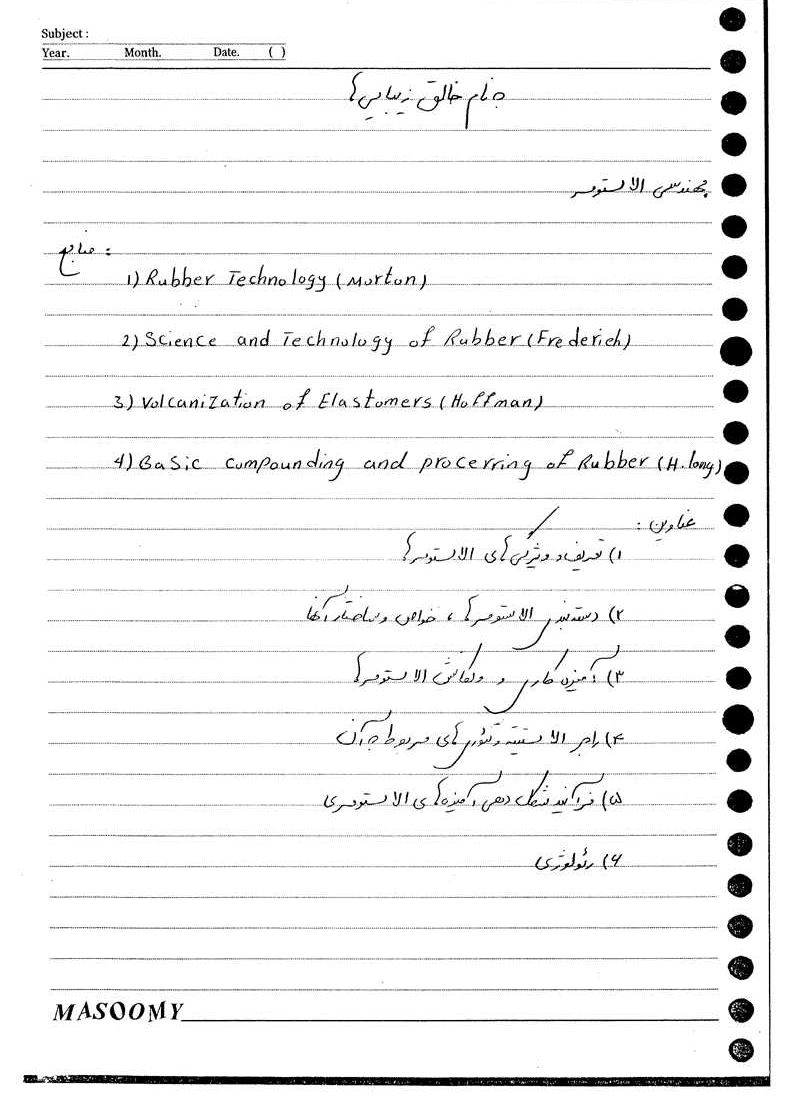 Subject :
Year. Month. Date. ( )
بنام خالق زیبایی ها
مهندسی الاستومر
منابع :
1) Rubber Technology (Morton)
2) Science and Technology of Rubber (Frederich)
3) Volcanization of Elastomers (Hoffman)
4) Basic compounding and procerring of Rubber (H. long)
عناوین :
۱) تعریف و ویژگی های الاستومرها
۲) دسته بندی الاستومرها ، خواص و ساختار آنها
۳) آمیزه کاری و ولکانش الاستومرها
۴) رابر الاستیسیته و تئوری های مربوط به آن
۵) فرآیند شکل دهی آمیزه های الاستومری
۶) رئولوژی
MASOOMY